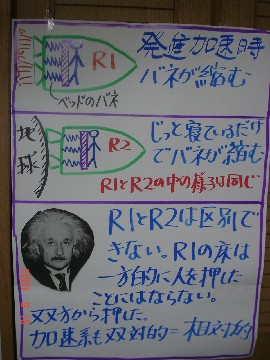 発進加速時
バネが縮む
R1
ベッドのバネ
地球
R2
じっと寝ているだけ
でバネが縮む
R1とR2の中の様子は同じ
R1とR2は区別で
きない。R1の床は
一方的に人を押した
ことにはならない。
双方から押した。
加速系も双対的=相対的